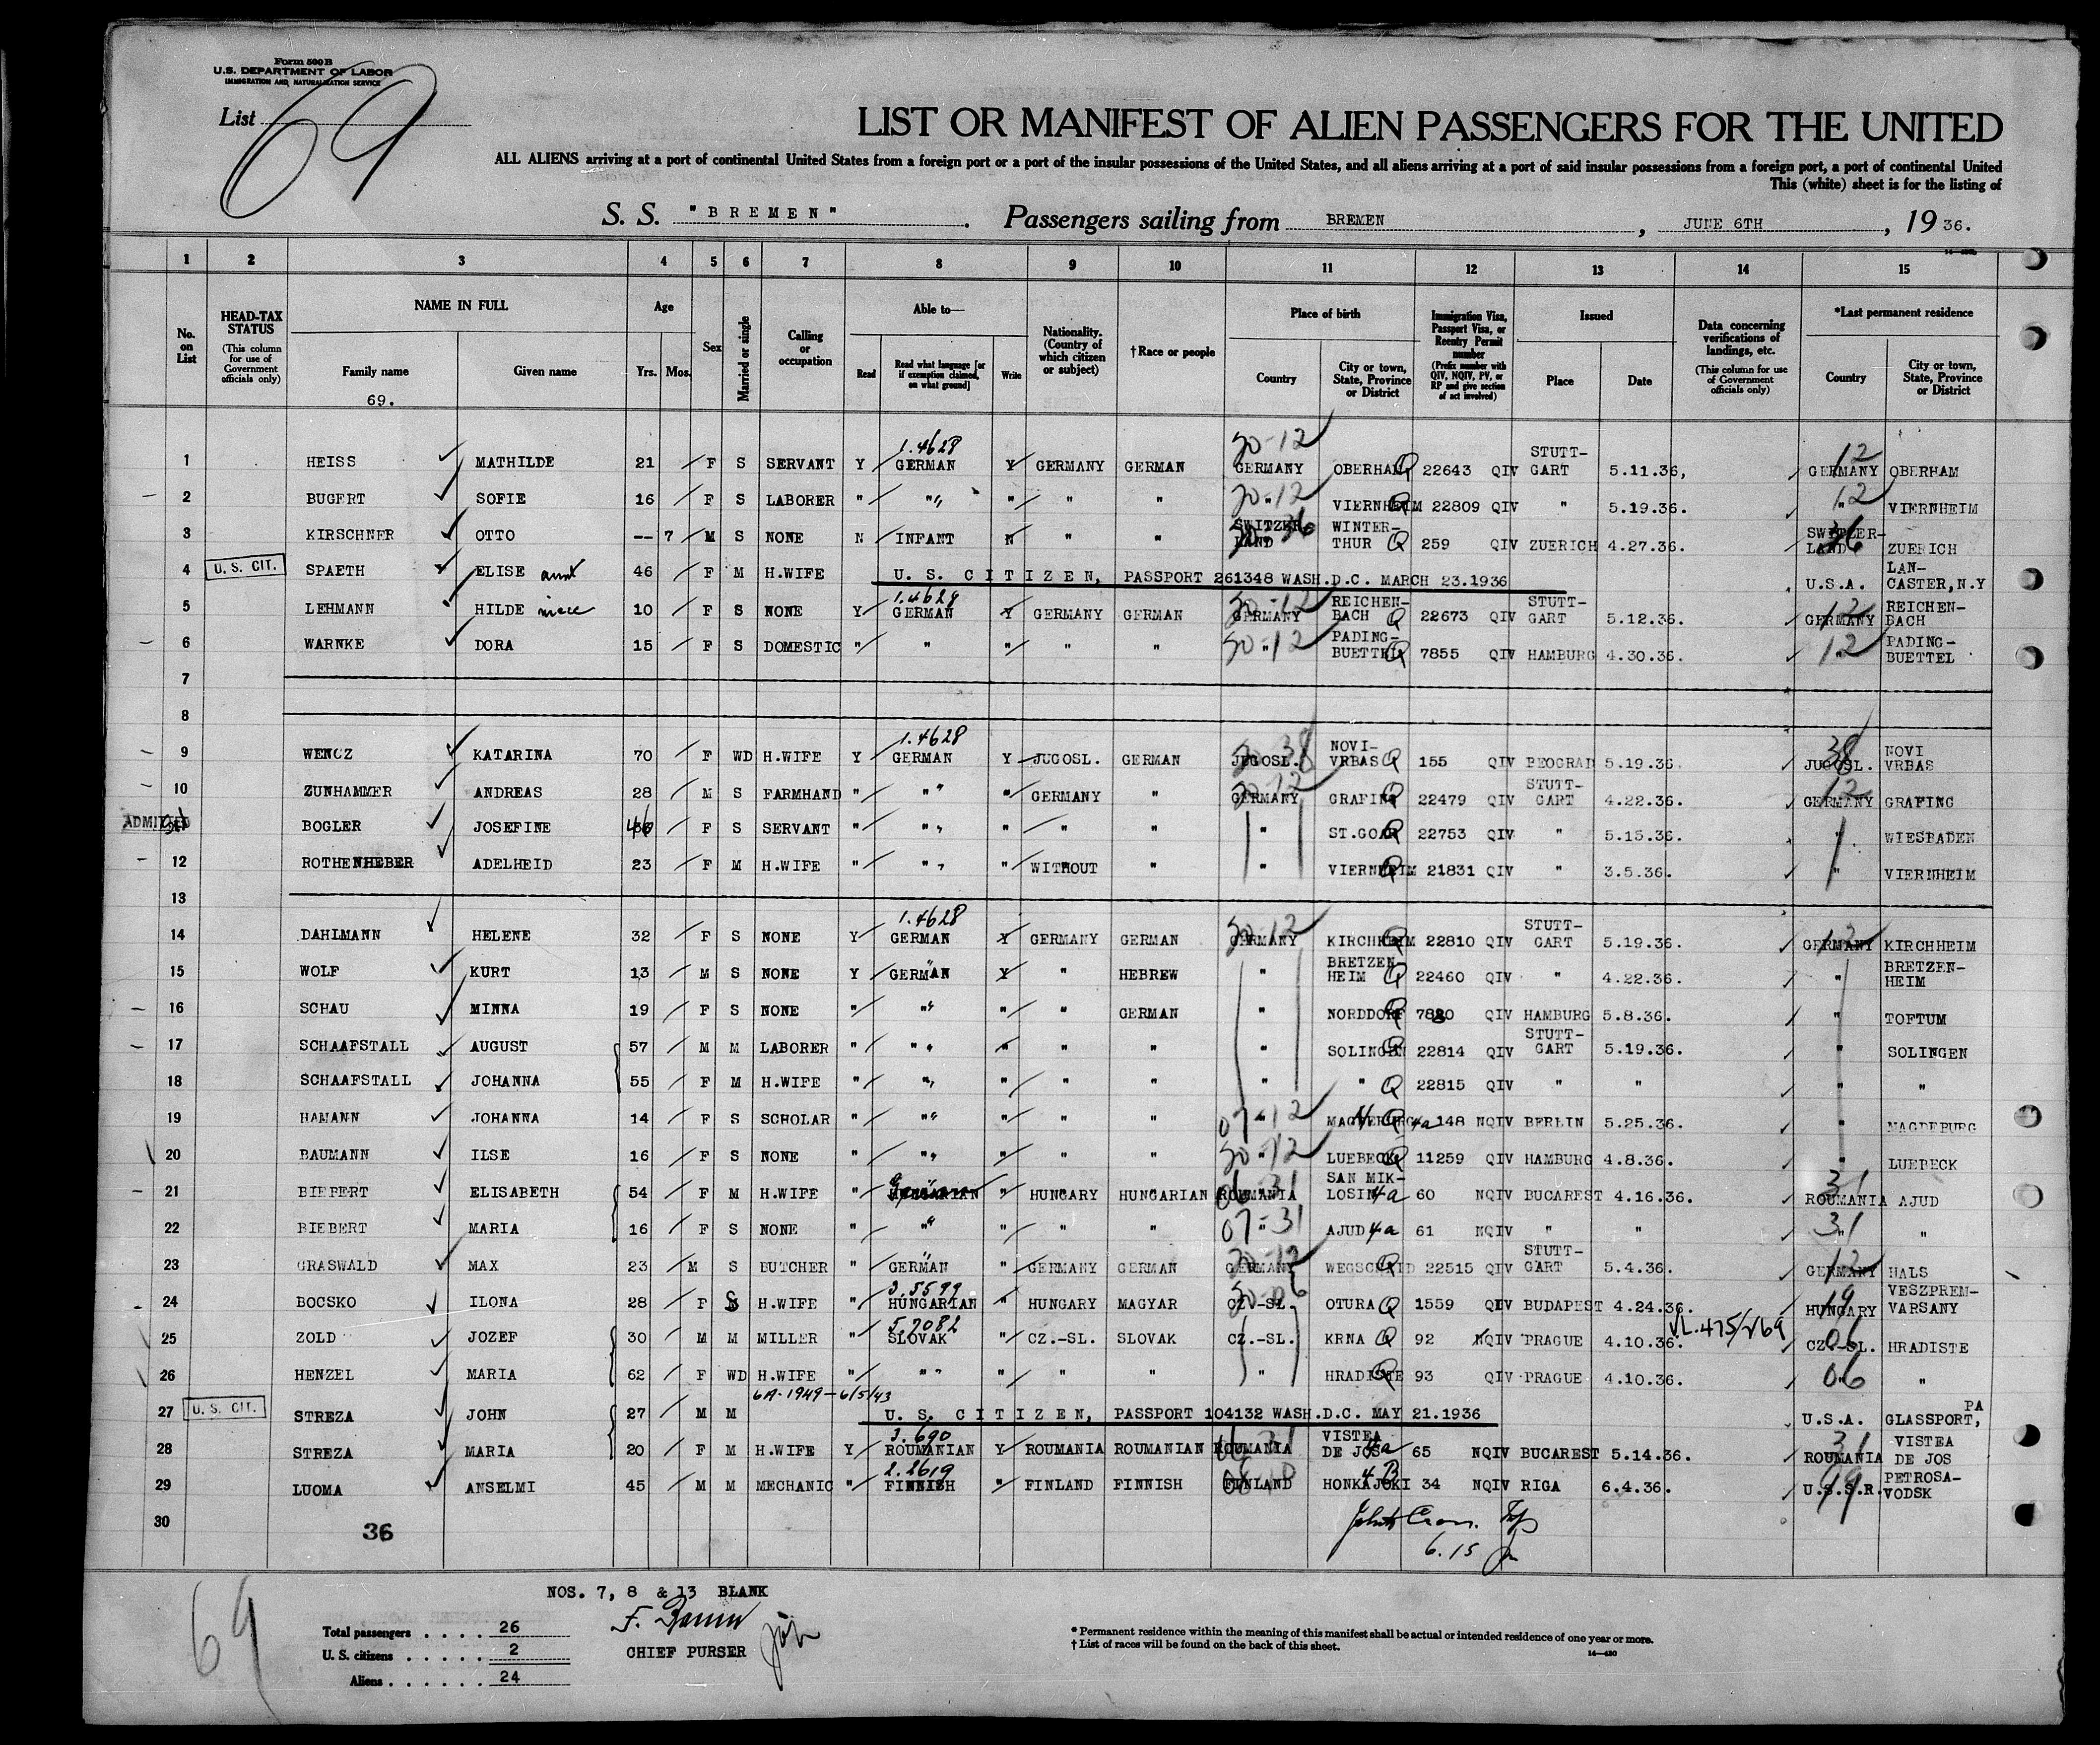 Form 500 B
U.S. DEPARTMENT OF LABOR
IMMIGRATION AND NATURALIZATION SERVICE
List 69
LIST OR MANIFEST OF ALIEN PASSENGERS FOR THE UNITED
ALL ALIENS arriving at a port of continental United States from a foreign port or a port of the insular possessions of the United States, and all aliens arriving at a port of said insular possessions from a foreign port, a port of continental United
This (white) sheet is for the listing of
S. S. "BREMEN". Passengers sailing from BREMEN, JUNE 6TH, 1936.
1 2 3 4 5 6 7 8 9 10 11 12 13 14 15
No. on List
HEAD-TAX STATUS (This column for use of Government officials only)
NAME IN FULL Family name Given name
69.
Age Yrs. Mos.
Sex
Married or single
Calling or occupation
Able to— Read Read what language [or if exemption claimed, on what ground] Write
Nationality. (Country of which citizen or subject)
†Race or people
Place of birth Country City or town, State, Province or District
Immigration Visa, Passport Visa, or Reentry Permit number (Prefix number with QIV, NQIV, PV, or RP and give section of act involved)
Issued Place Date
Data concerning verifications of landings, etc. (This column for use of Government officials only)
*Last permanent residence Country City or town, State, Province or District
1 HEISS MATHILDE 21 F S SERVANT Y 1.4628 GERMAN Y GERMANY GERMAN 30-12 GERMANY OBERHAM Q 22643 QIV STUTT-GART 5.11.36, 12 GERMANY OBERHAM
2 BUGERT SOFIE 16 F S LABORER " " " " " 30-12 " VIERNHEIM Q 22809 QIV " 5.19.36. 12 " VIERNHEIM
3 KIRSCHNER OTTO -- 7 M S NONE N INFANT N " " SWITZER-LAND 36 WINTER-THUR Q 259 QIV ZUERICH 4.27.36. SWITZER-LAND 36 ZUERICH
4 U. S. CIT. SPAETH ELISE aunt 46 F M H.WIFE U. S. CITIZEN, PASSPORT 261348 WASH.D.C. MARCH 23.1936 U.S.A. LAN-CASTER,N.Y
5 LEHMANN HILDE niece 10 F S NONE Y 1.4628 GERMAN Y GERMANY GERMAN 30-12 GERMANY REICHEN-BACH Q 22673 QIV STUTT-GART 5.12.36. 12 GERMANY REICHEN-BACH
6 WARNKE DORA 15 F S DOMESTIC " " " " " 30-12 " PADING-BUETTEL Q 7855 QIV HAMBURG 4.30.36. 12 " PADING-BUETTEL
7
8
9 WENCZ KATARINA 70 F WD H.WIFE Y 1.4628 GERMAN Y JUGOSL. GERMAN 38 JUGOSL. NOVI-VRBAS Q 155 QIV BEOGRAD 5.19.36. 38 JUGOSL. NOVI VRBAS
10 ZUNHAMMER ANDREAS 28 M S FARMHAND " " " GERMANY " 30-12 GERMANY GRAFING Q 22479 QIV STUTT-GART 4.22.36. 12 GERMANY GRAFING
ADMITTED BOGLER JOSEFINE 46 F S SERVANT " " " " " " ST.GOAR Q 22753 QIV " 5.15.36. " WIESBADEN
12 ROTHENHEBER ADELHEID 23 F M H.WIFE " " " WITHOUT " " VIERNHEIM Q 21831 QIV " 3.5.36. " VIERNHEIM
13
14 DAHLMANN HELENE 32 F S NONE Y 1.4628 GERMAN Y GERMANY GERMAN 30-12 GERMANY KIRCHHEIM Q 22810 QIV STUTT-GART 5.19.36. 12 GERMANY KIRCHHEIM
15 WOLF KURT 13 M S NONE Y GERMAN Y " HEBREW " BRETZEN-HEIM Q 22460 QIV " 4.22.36. " BRETZEN-HEIM
16 SCHAU MINNA 19 F S NONE " " " " GERMAN " NORDDORF Q 7880 QIV HAMBURG 5.8.36. " TOFTUM
17 SCHAAFSTALL AUGUST 57 M M LABORER " " " " " " SOLINGEN Q 22814 QIV STUTT-GART 5.19.36. " SOLINGEN
18 SCHAAFSTALL JOHANNA 55 F M H.WIFE " " " " " " " Q 22815 QIV " " " "
19 HAMANN JOHANNA 14 F S SCHOLAR " " " " " 07-12 " MAGDEBURG 4a 148 NQIV BERLIN 5.25.36. " MAGDEBURG
20 BAUMANN ILSE 16 F S NONE " " " " " 30-12 " LUEBECK Q 11259 QIV HAMBURG 4.8.36. " LUEBECK
21 BIEBERT ELISABETH 54 F M H.WIFE " German HUNGARIAN " HUNGARY HUNGARIAN 06-31 ROUMANIA SAN MIK-LOSIN 4a 60 NQIV BUCAREST 4.16.36. 31 ROUMANIA AJUD
22 BIEBERT MARIA 16 F S NONE " " " " " 07-31 " AJUD 4a 61 NQIV " " 31 " "
23 GRASWALD MAX 23 M S BUTCHER " GERMAN " GERMANY GERMAN 30-12 GERMANY WEGSCHEID Q 22515 QIV STUTT-GART 5.4.36. 12 GERMANY HALS
24 BOCSKO ILONA 28 F S H.WIFE " 3.5599 HUNGARIAN " HUNGARY MAGYAR 30-06 CZ.-SL. OTURA Q 1559 QIV BUDAPEST 4.24.36. 19 HUNGARY VESZPREM-VARSANY
25 ZOLD JOZEF 30 M M MILLER " 5.2082 SLOVAK " CZ.-SL. SLOVAK CZ.-SL. KRNA Q 92 NQIV PRAGUE 4.10.36. VL.475/269 06 CZ.-SL. HRADISTE
26 HENZEL MARIA 62 F WD H.WIFE " " " " " " HRADISTE Q 93 QIV PRAGUE 4.10.36. 06 " "
6A-1949-6/5/43
27 U. S. CIT. STREZA JOHN 27 M M U. S. CITIZEN, PASSPORT 104132 WASH.D.C. MAY 21.1936 U.S.A. GLASSPORT, PA
28 STREZA MARIA 20 F M H.WIFE Y 3.690 ROUMANIAN Y ROUMANIA ROUMANIAN ROUMANIA VISTEA DE JOS 4a 65 NQIV BUCAREST 5.14.36. 31 ROUMANIA VISTEA DE JOS
29 LUOMA ANSELMI 45 M M MECHANIC " 2.2619 FINNISH " FINLAND FINNISH 08-10 FINLAND HONKAJOKI 4B 34 NQIV RIGA 6.4.36. U.S.S.R. PETROSA-VODSK
30
36
6.15
NOS. 7, 8 & 13 BLANK
69
Total passengers . . . . 26
U. S. citizens . . . . . 2
Aliens . . . . . . 24
CHIEF PURSER
* Permanent residence within the meaning of this manifest shall be actual or intended residence of one year or more.
† List of races will be found on the back of this sheet.
14—430